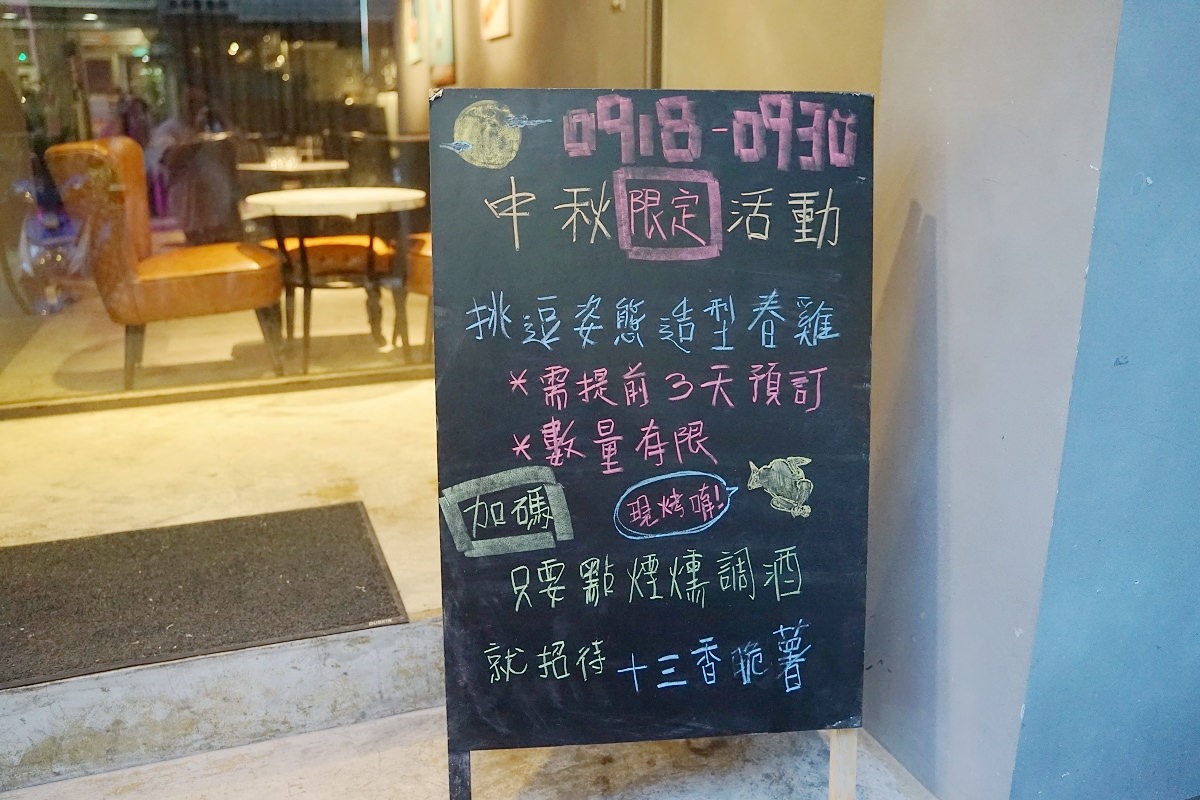 0918-0930
中秋限定活動
挑逗姿態造型春雞
*需提前3天預訂
*數量有限
加碼
現烤唷!
只要點煙燻調酒
就招待十三香脆薯